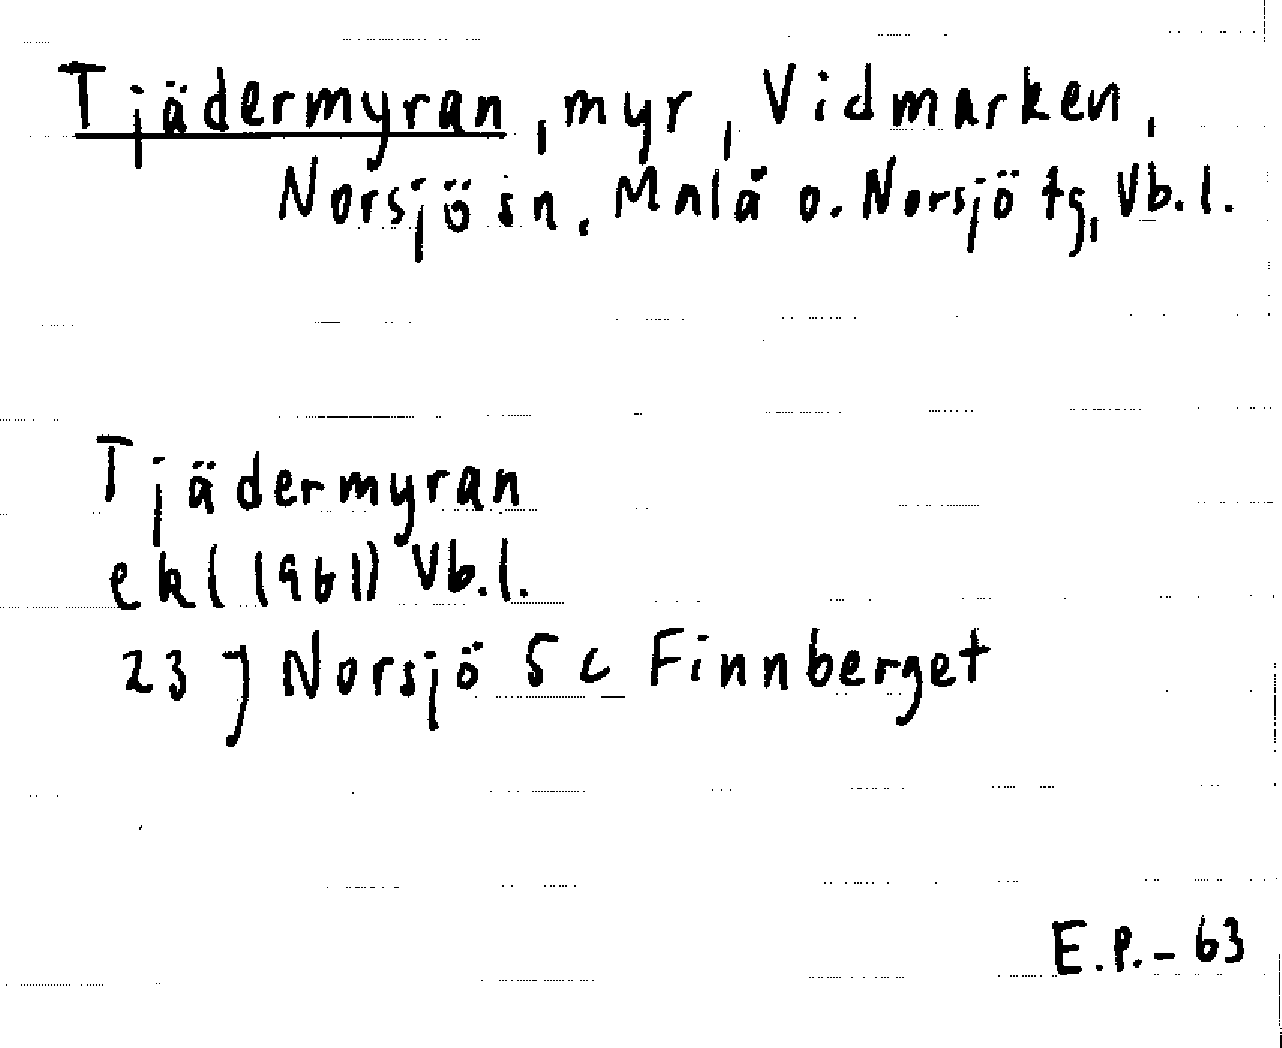 Tjädermyran, myr, Vidmarken,
Norsjö sn. Malå o. Norsjö tg, Vb.l.
Tjädermyran
ek (1961) Vb.l.
23 J Norsjö 5 c Finnberget
E.P.-63